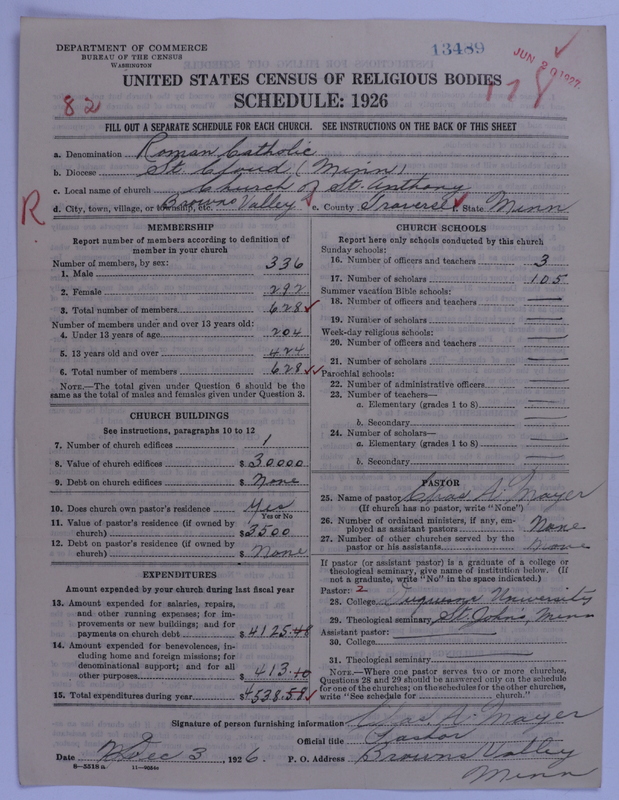 DEPARTMENT OF COMMERCE
BUREAU OF THE CENSUS
WASHINGTON
13489
JUN 29 1927
UNITED STATES CENSUS OF RELIGIOUS BODIES
SCHEDULE: 1926
82
FILL OUT A SEPARATE SCHEDULE FOR EACH CHURCH. SEE INSTRUCTIONS ON THE BACK OF THIS SHEET
a. Denomination Roman Catholic
b. Diocese St. Cloud (Minn)
c. Local name of church Church of St. Anthony
R
d. City, town, village, or township, etc. Browns Valley e. County Traverse f. State Minn
MEMBERSHIP
Report number of members according to definition of
member in your church
Number of members, by sex:
1. Male 336
2. Female 292
3. Total number of members 628
Number of members under and over 13 years old:
4. Under 13 years of age 204
5. 13 years old and over 424
6. Total number of members 628
NOTE.—The total given under Question 6 should be the
same as the total of males and females given under Question 3.
CHURCH BUILDINGS
See instructions, paragraphs 10 to 12
7. Number of church edifices 1
8. Value of church edifices $ 30000
9. Debt on church edifices $ None
10. Does church own pastor's residence Yes
Yes or No
11. Value of pastor's residence (if owned by
church) $ 3500
12. Debt on pastor's residence (if owned by
church) $ None
EXPENDITURES
Amount expended by your church during last fiscal year
13. Amount expended for salaries, repairs,
and other running expenses; for im-
provements or new buildings; and for
payments on church debt $ 4125.48
14. Amount expended for benevolences, in-
cluding home and foreign missions; for
denominational support; and for all
other purposes $ 413.10
15. Total expenditures during year $ 4538.59
CHURCH SCHOOLS
Report here only schools conducted by this church
Sunday schools:
16. Number of officers and teachers 3
17. Number of scholars 105
Summer vacation Bible schools:
18. Number of officers and teachers —
19. Number of scholars —
Week-day religious schools:
20. Number of officers and teachers —
21. Number of scholars —
Parochial schools:
22. Number of administrative officers —
23. Number of teachers—
a. Elementary (grades 1 to 8) —
b. Secondary —
24. Number of scholars—
a. Elementary (grades 1 to 8) —
b. Secondary —
PASTOR
25. Name of pastor Chas A. Mayer
(If church has no pastor, write "None")
26. Number of ordained ministers, if any, em-
ployed as assistant pastors None
27. Number of other churches served by the
pastor or his assistants None
If pastor (or assistant pastor) is a graduate of a college or
theological seminary, give name of institution below. (If
not a graduate, write "No" in the space indicated.)
Pastor: 2
28. College Duquesne University
29. Theological seminary St. John's, Minn
Assistant pastor:
30. College
31. Theological seminary
NOTE.—Where one pastor serves two or more churches,
Questions 28 and 29 should be answered only on the schedule
for one of the churches; on the schedules for the other churches,
write "See schedule for church."
Signature of person furnishing information Chas A. Mayer
Official title Pastor
Date Dec 3, 1926. P. O. Address Browns Valley
Minn
8—5518a